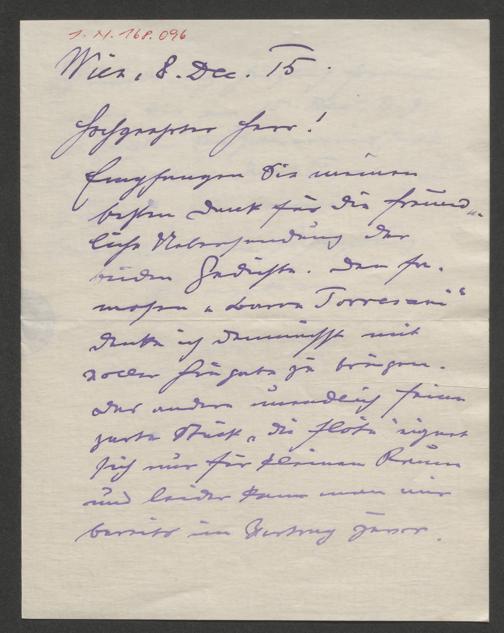 I. N. 168.096
Wien, 8. Dec. 15.
Hochgeehrter Herr!
Empfangen Sie meinen
besten Dank für die freund-
liche Uebersendung der
beiden Gedichte. Den fa-
mosen „Torresani“
denke ich demnächst mit
voller Hingabe zu bringen.
Das andere unendlich feine
zarte Stück „die Flöte“ eignet
sich nur für kleinen Raum
und leider kam man mir
bereits im Vortrag zuvor.